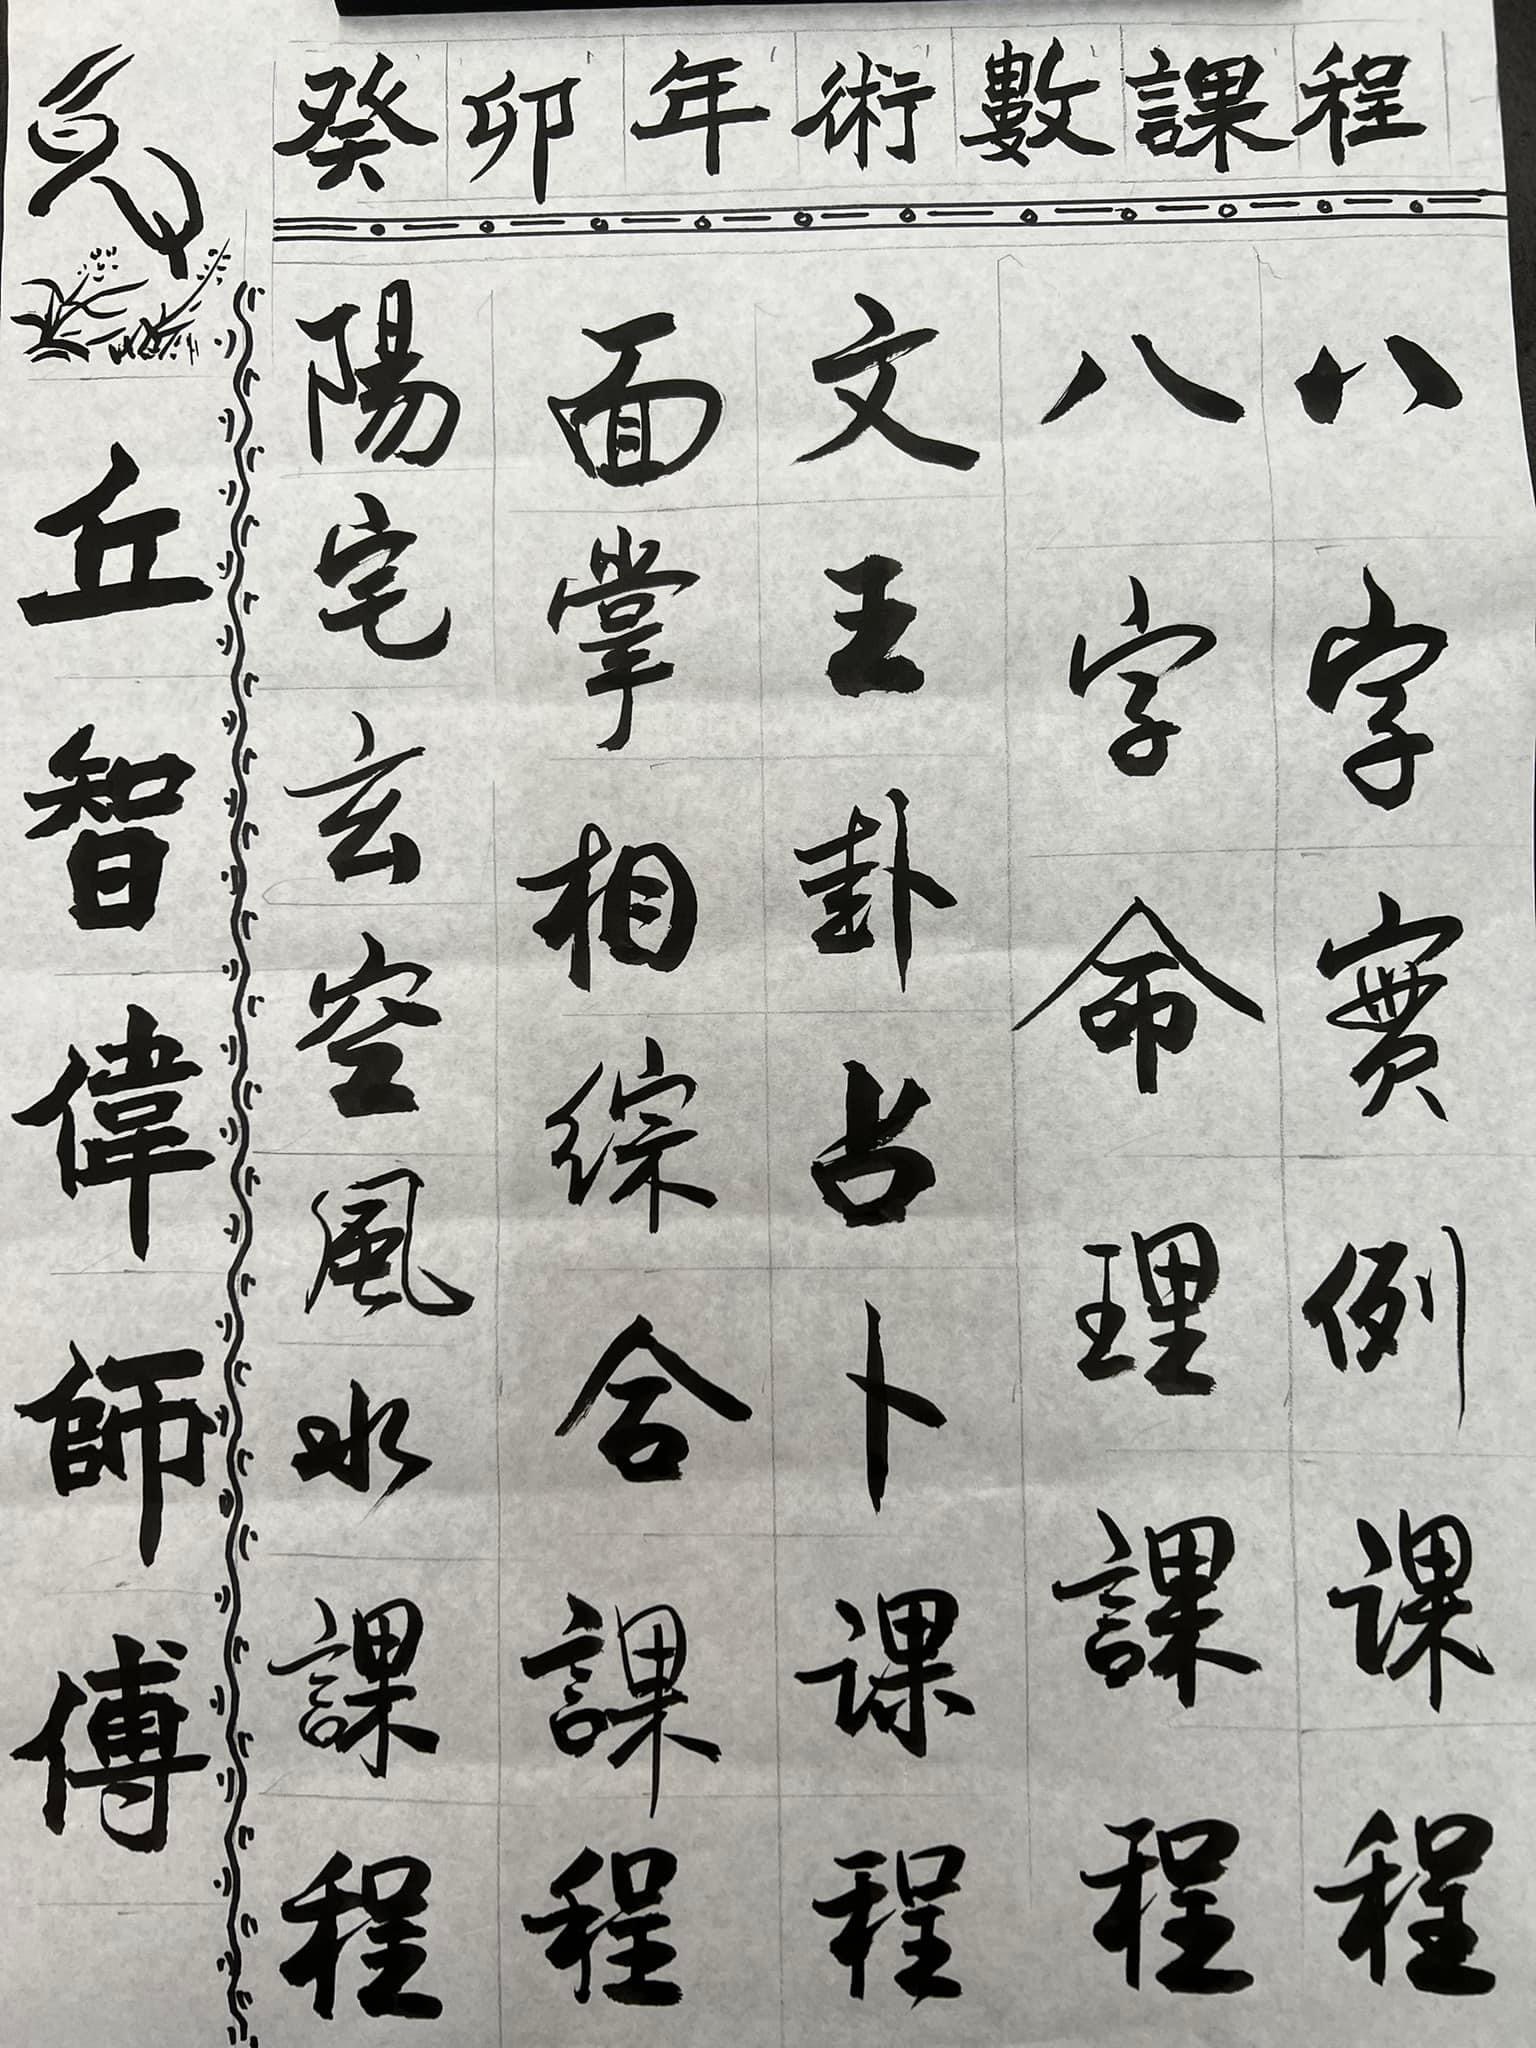 癸卯年術數課程
八字實例课程
八字命理課程
文王卦占卜课程
面掌相綜合課程
陽宅玄空風水課程
兔
丘智偉師傅